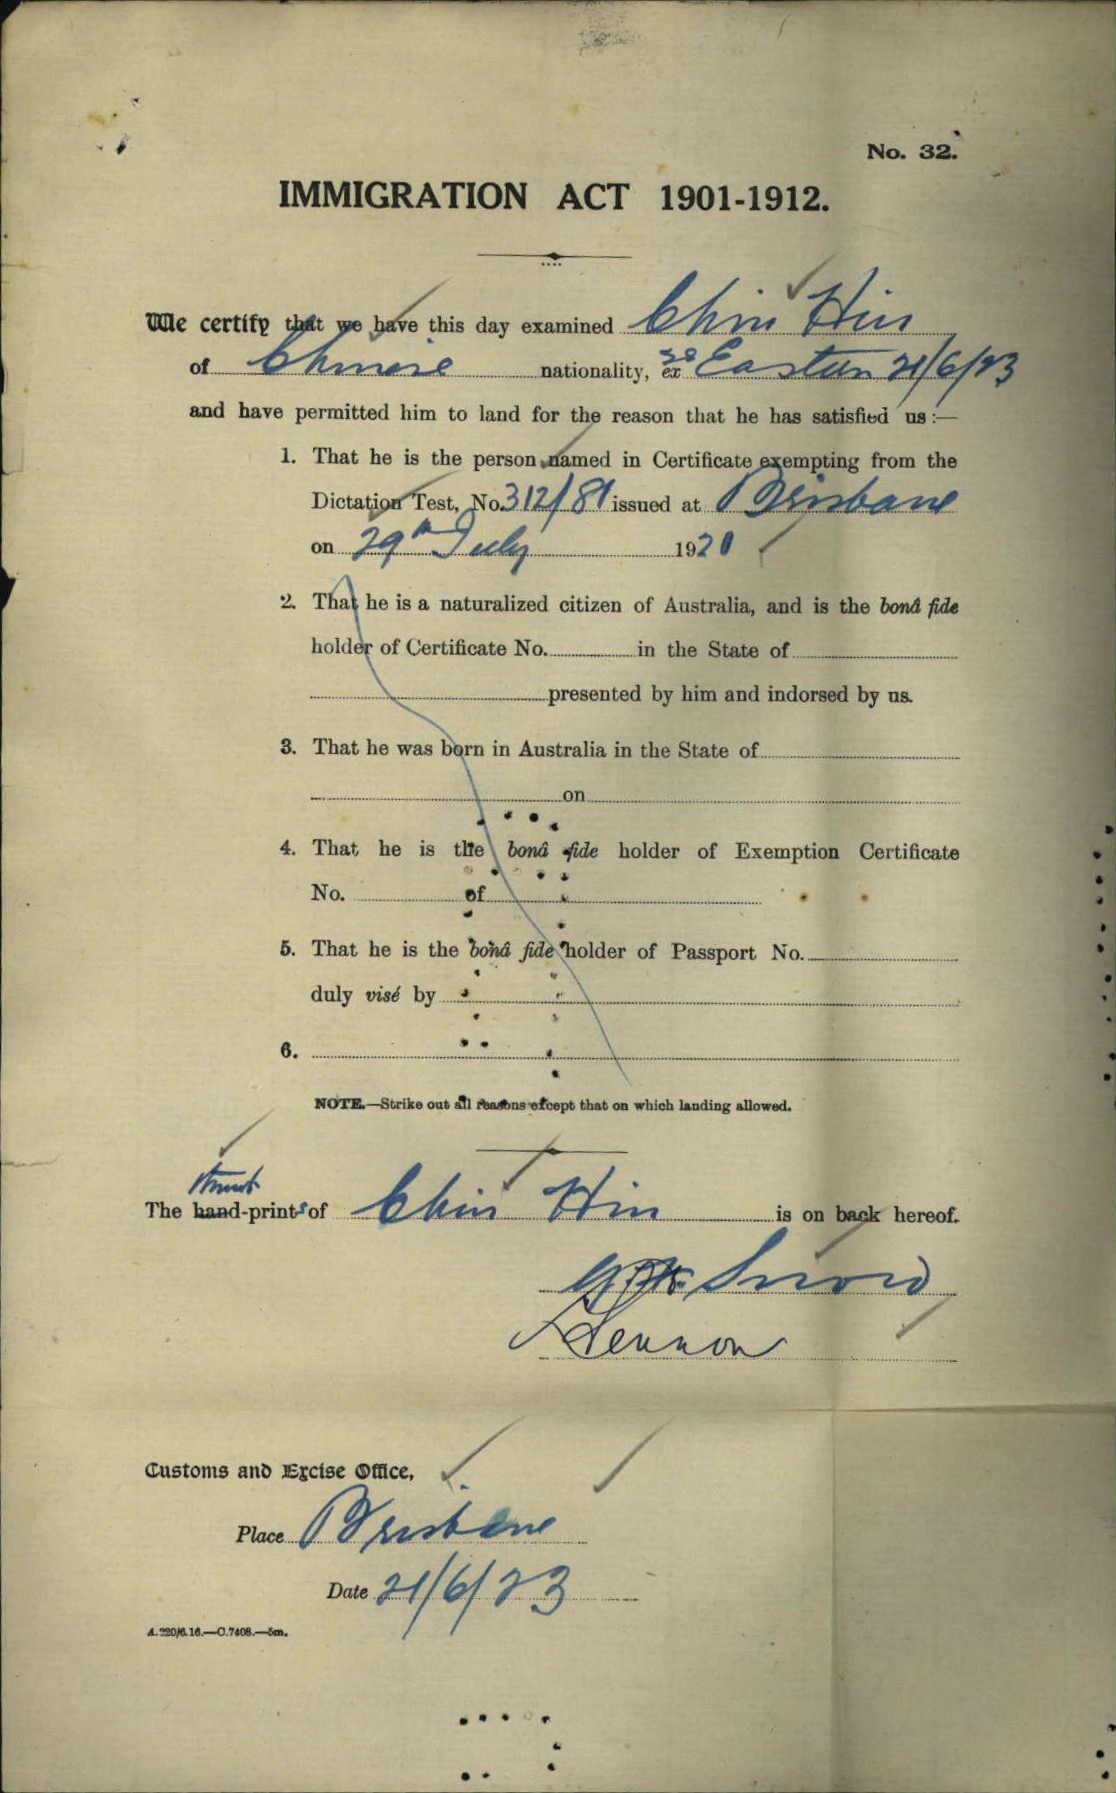 No. 32.
IMMIGRATION ACT 1901-1912.
We certify that we have this day examined Chin Hin
of Chinese nationality, ex ss Eastern 21/6/23
and have permitted him to land for the reason that he has satisfied us :—
1. That he is the person named in Certificate exempting from the
Dictation Test, No. 312/81 issued at Brisbane
on 29th July 1920
2. That he is a naturalized citizen of Australia, and is the bonâ fide
holder of Certificate No. in the State of
presented by him and indorsed by us.
3. That he was born in Australia in the State of
on
4. That he is the bonâ fide holder of Exemption Certificate
No. of
5. That he is the bonâ fide holder of Passport No.
duly visé by
6.
NOTE.—Strike out all reasons except that on which landing allowed.
thumb
The hand-prints of Chin Hin is on back hereof.
Snow
Lennon
Customs and Excise Office,
Place Brisbane
Date 21/6/23
A.220/6.16.—C.7408.—5m.